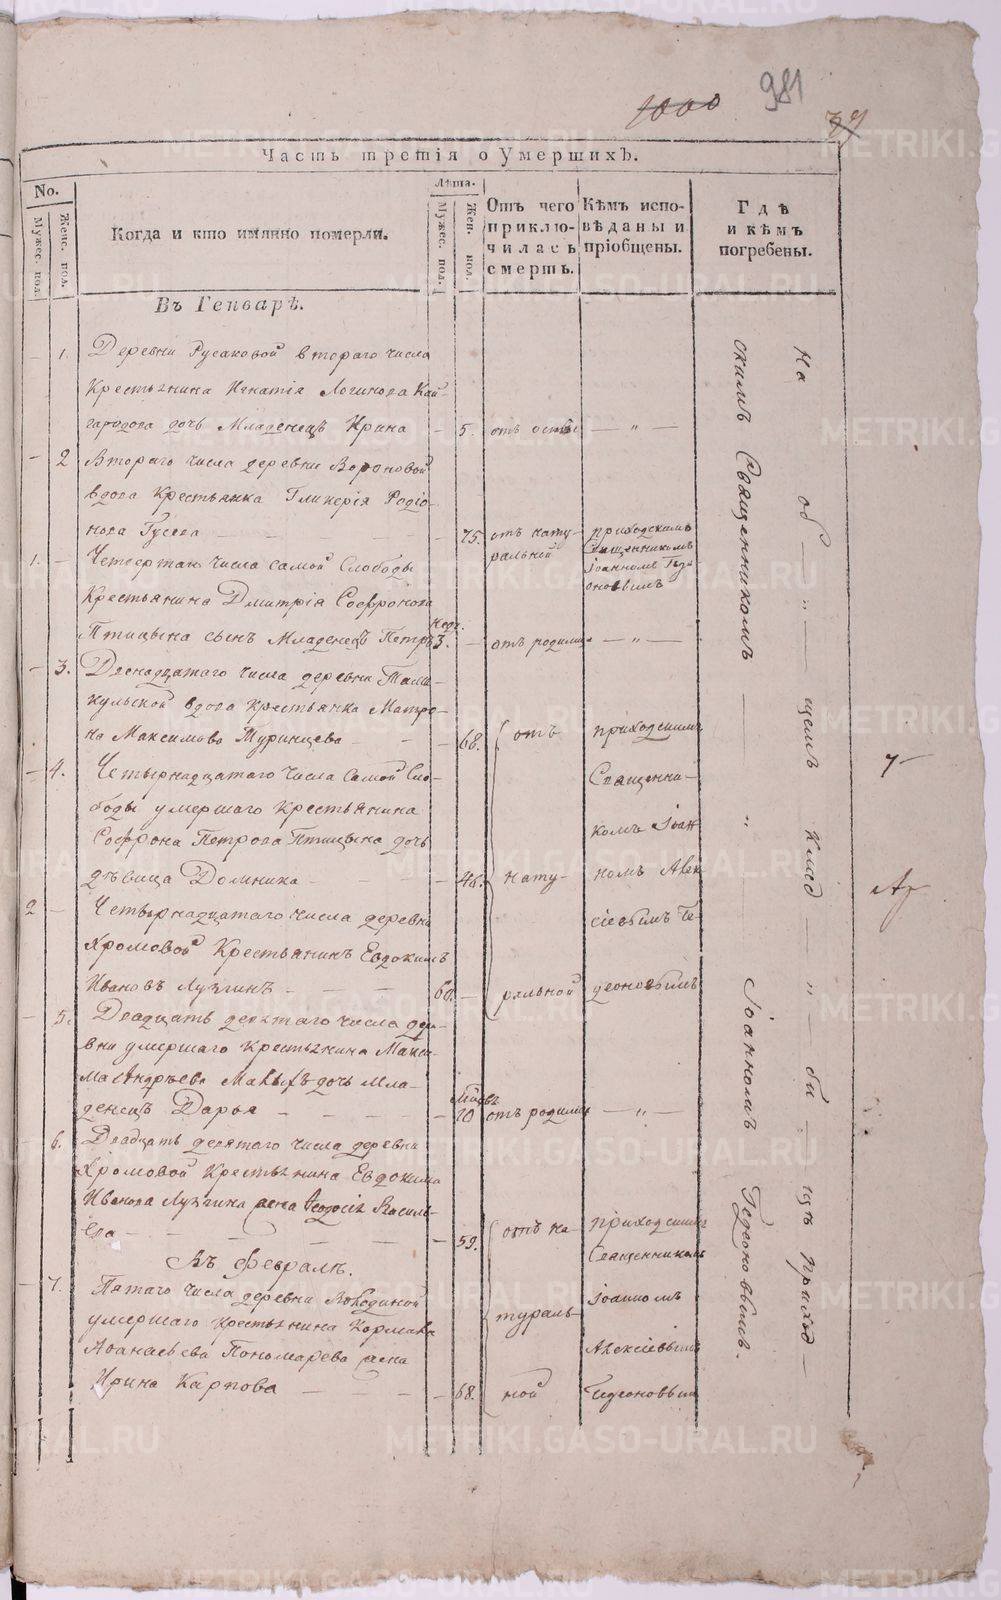 1000 981
Часть третія о Умершихъ.
No.
Мужес. пол.
Женс. пол.
Когда и кто имянно померли.
Лѣта.
Мужес. пол.
Жен. пол.
Отъ чего приклю-чилась смерть.
Кѣмъ испо-вѣданы и пріобщены.
Гдѣ и кѣмъ погребены.
Въ Генварѣ.
— 1. Деревни Русаковой втораго числа
Крестьянина Игнатія Логинова Кай-
городова дочь Младенецъ Ирина — 5. отъ оспы — „ —
— 2 Втораго числа деревни Вороновой
вдова Крестьянка Гликерія Родіо-
нова Гусева — 75. отъ нату-
ральной
приходскимъ
Священникомъ
Іоанномъ Геде
оновымъ
1. — Четвертаго числа самой Слободы
Крестьянина Дмитрія Софронова
Птицына сынъ Младенецъ Петръ нед. 3. — отъ родимца — „ —
— 3. Двенадцатаго числа деревни Тали-
кульской вдова Крестьянка Матро-
на Максимова Туринцева — — 68. отъ приходскимъ
— 4. Четырнадцатаго числа самой Сло-
боды умершаго Крестьянина
Софрона Петрова Птицына дочь
дѣвица Домника — — 46. нату-
Священни-
комъ Іоан
номъ Алек
2 — Четырнадцатаго числа деревни
Хромовой Крестьянинъ Евдокимъ
Ивановъ Лузгинъ — — — 60. — ральной
сіевымъ Ге-
деоновымъ
— 5. Двадцать девятаго числа дере-
вни умершаго Крестьянина Макси-
ма Андрѣева Малыхъ дочь Мла-
денецъ Дарья — — — 10 отъ родимца — „ —
— 6. Двадцать девятаго числа деревни
Хромовой Крестьянина Евдокима
Иванова Лузгина жена Феодосія Василь-
ева — — — — — 59. отъ на
приходскимъ
Священникомъ
Въ Февралѣ.
— 7. Пятаго числа деревни
умершаго Крестьянина
Афанасьева Пономарева жена
Ирина Карпова — — — — 68.
тураль-
ной
Іоанномъ
Алексіевымъ
Гедеоновымъ
На об — „ — щемъ клад — „ — би — щѣ приход —
скимъ Священникомъ — „ Іоанномъ Гедеоновымъ.